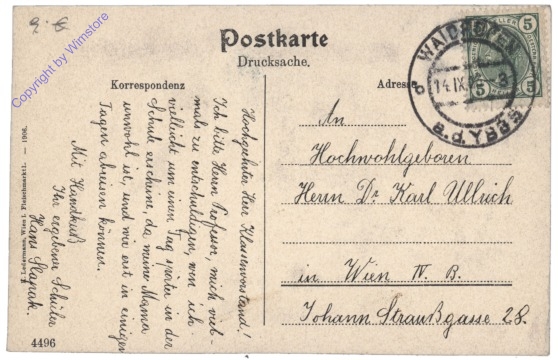 Copyright by Wimstore
Postkarte
Drucksache.
Korrespondenz
Adresse
WAIDHOFEN
14.IX.
a.d.YBBS
5 5
An
Hochwohlgeboren
Herrn Dr. Karl Ullrich
in Wien IV. B.
Johann Straußgasse 28.
Hochgeehrter Herr Klassenvorstand!
Ich bitte Herrn Professor, mich viel-
mals zu entschuldigen, wen ich
vielleicht um einen Tag später in der
Schule erscheine, da meine Mama
unwohl ist, und wir erst in einigen
Tagen abreisen können.
Mit Handkuß
Ihr ergebener Schüler
Hans Slapak.
Ledermann, Wien I. Fleischmarkt 1. — 1906.
4496